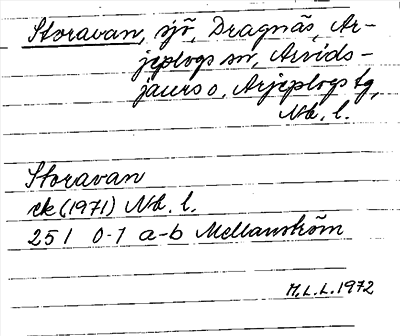 Storavan, sjö, Dragnäs, Ar-
jeplogs sn, Arvids-
jaurs o, Arjeplogs tg,
Nb. l.
Storavan
ek (1971) Nb. l.
25 I 0-1 a-b Mellanström
M.L.L. 1972